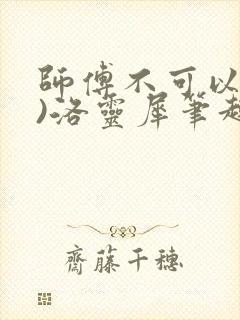 師傅不可以
)洛靈犀筆趣
齊藤千穗